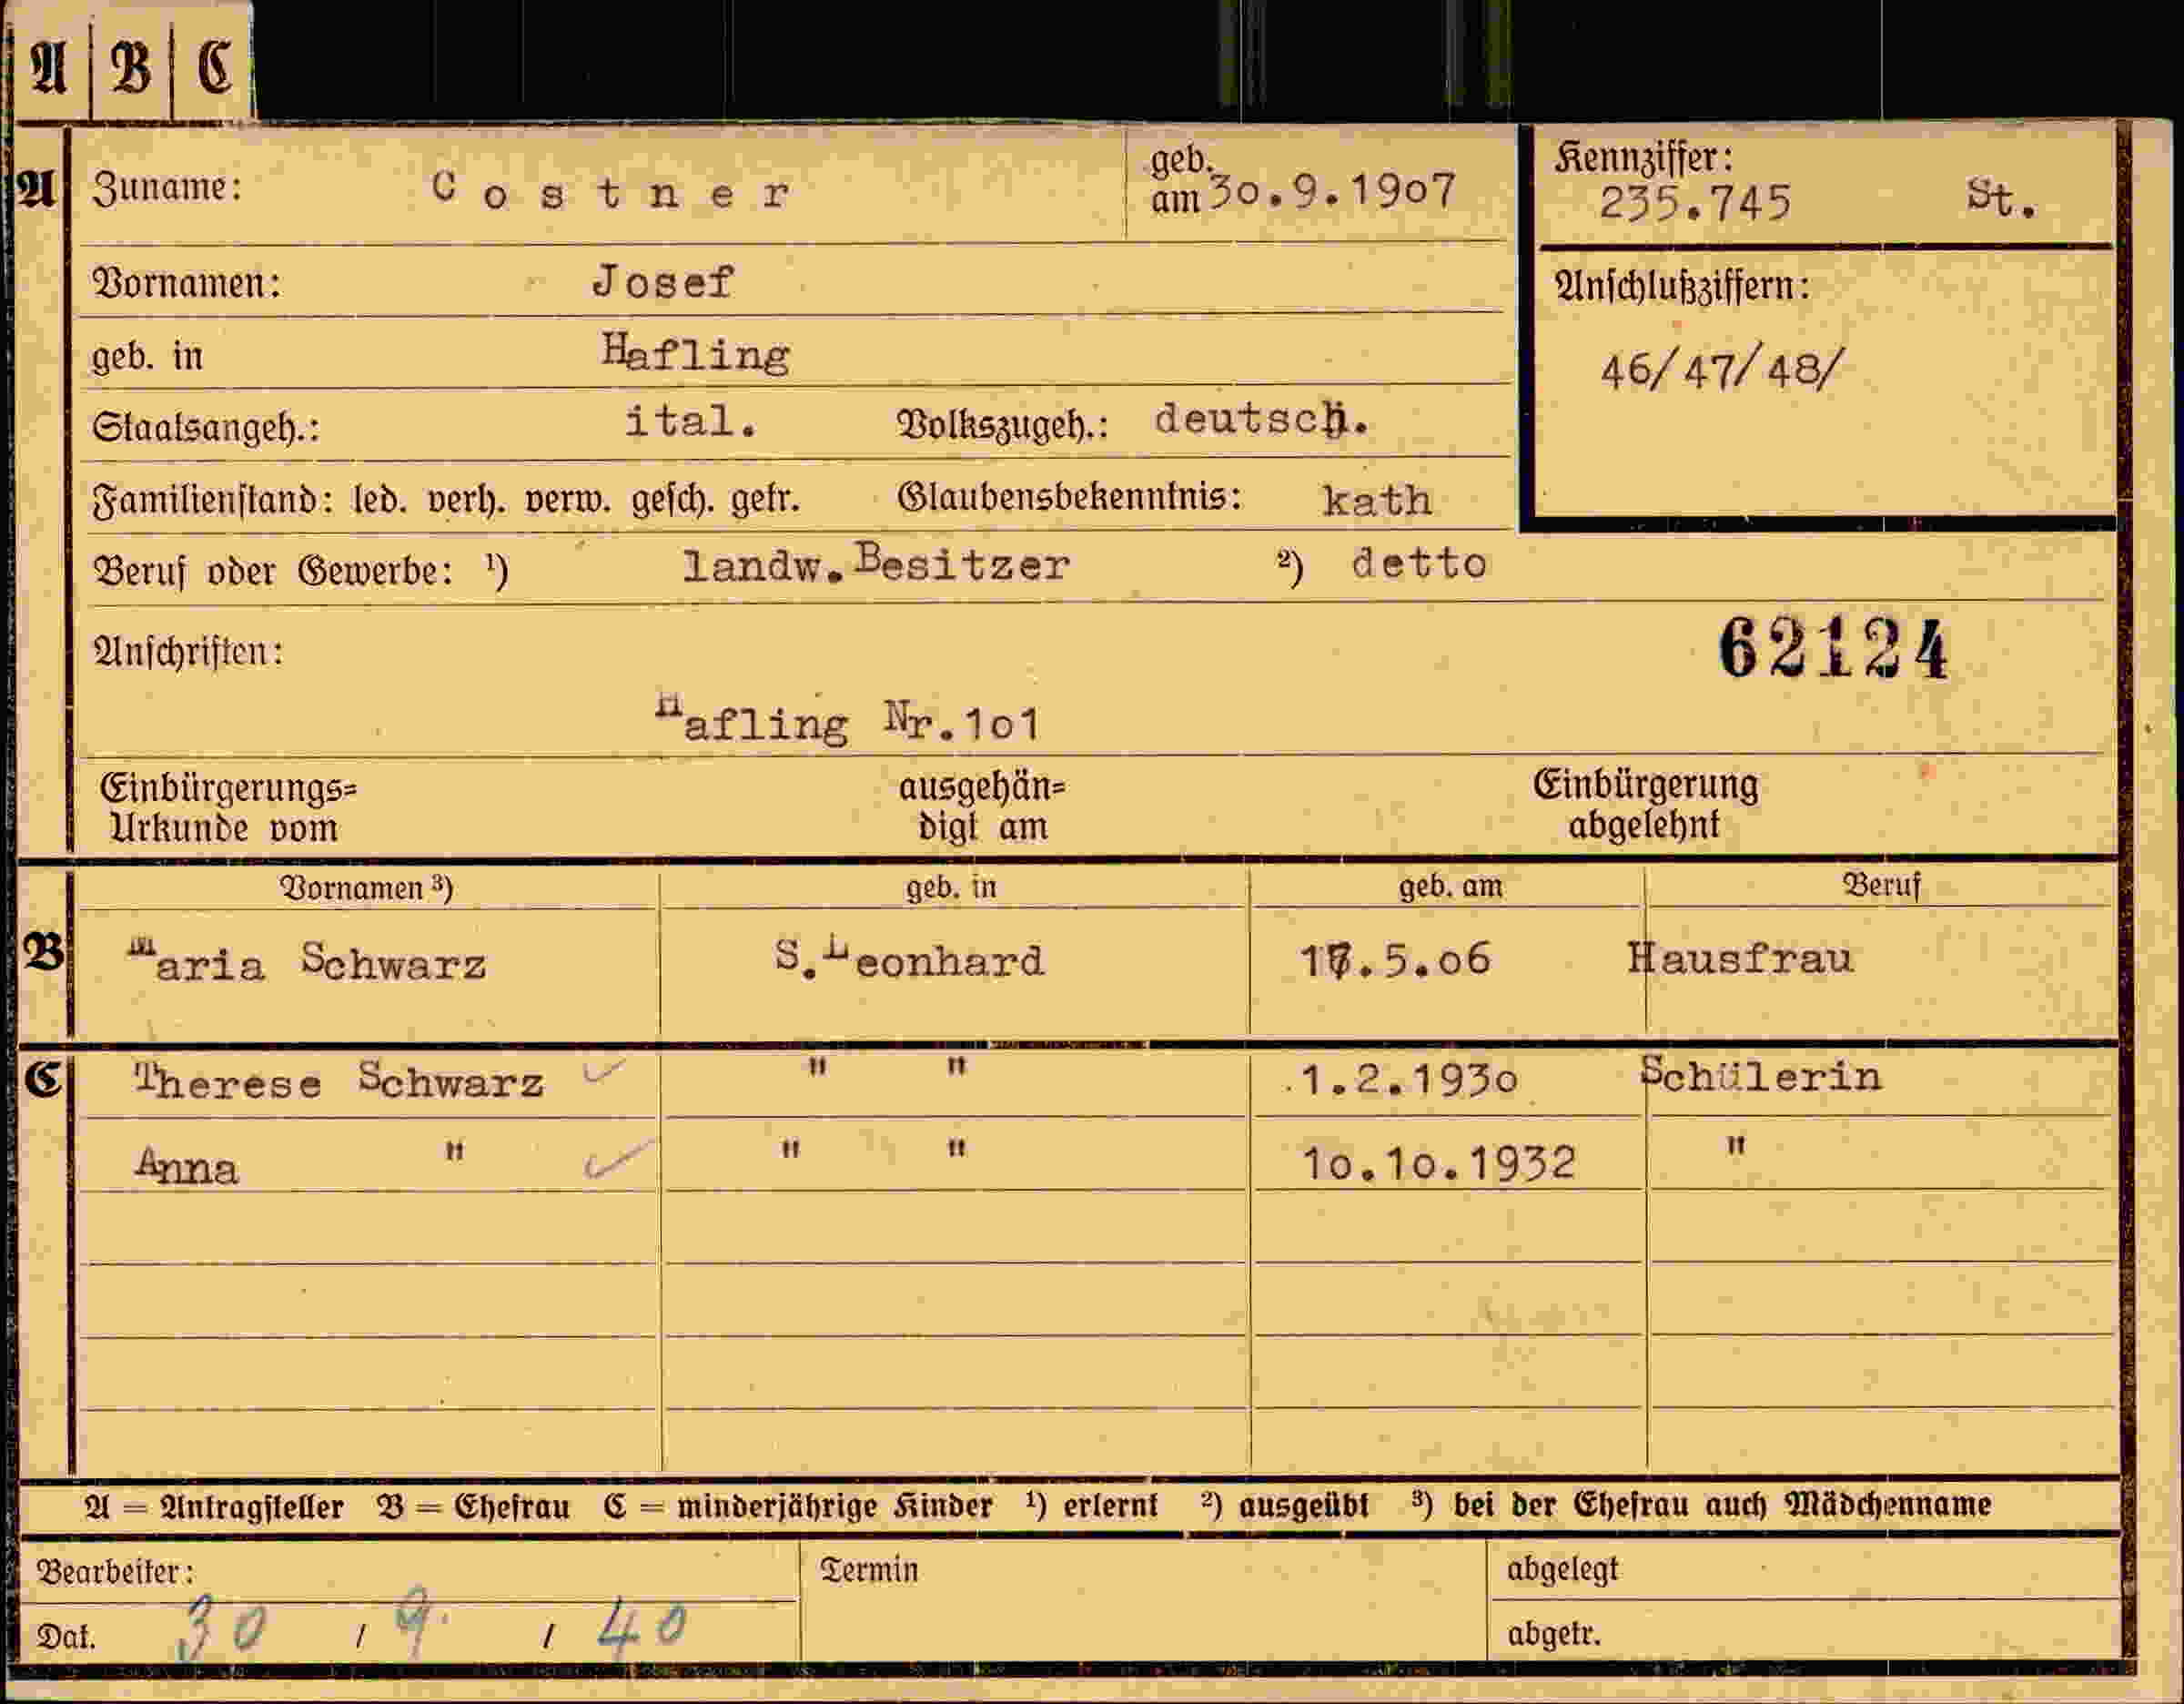 A B C
A Zuname: Costner geb. am 30.9.1907 Kennziffer: 235.745 St.
Vornamen: Josef Anschlußziffern:
geb. in Hafling 46/47/48/
Staatsangeh.: ital. Volkszugeh.: deutsch.
Familienstand: led. verh. verw. gesch. getr. Glaubensbekenntnis: kath
Beruf oder Gewerbe: ¹) landw.Besitzer ²) detto
Anschriften: 62124
Hafling Nr.101
Einbürgerungs= ausgehän= Einbürgerung
Urkunde vom digt am abgelehnt
Vornamen ³) geb. in geb. am Beruf
B Maria Schwarz S.Leonhard .5.06 Hausfrau
C Therese Schwarz " " 1.2.1930 Schülerin
Anna " " " 10.10.1932 "
A = Antragsteller B = Ehefrau C = minderjährige Kinder ¹) erlernt ²) ausgeübt ³) bei der Ehefrau auch Mädchenname
Bearbeiter: Termin abgelegt
Dat. 30 / 9. / 40 abgetr.